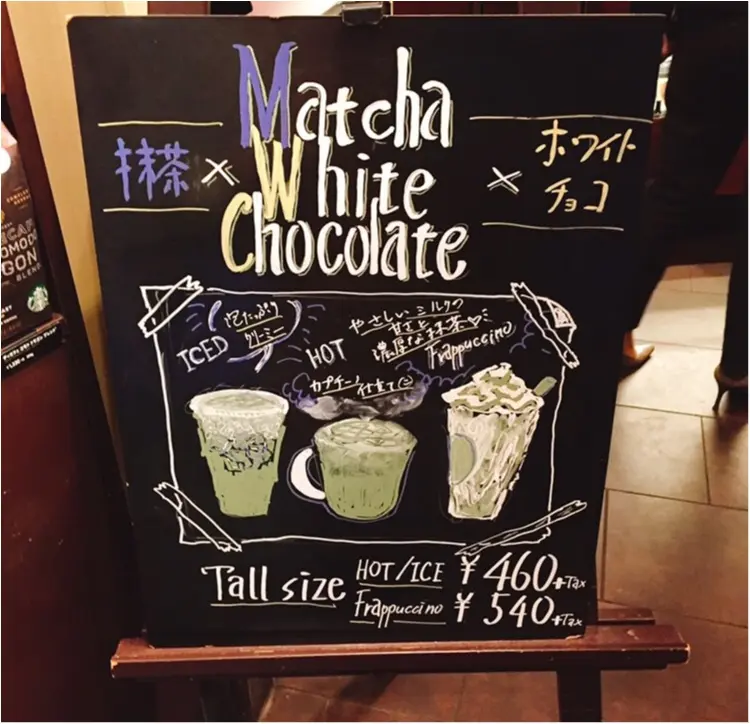 Matcha
White
Chocolate
抹茶 ×
× ホワイト
チョコ
ICED
泡たっぷり
クリーミー
HOT
カプチーノ
仕立てに
やさしいミルクの
甘さと
濃厚な抹茶
Frappuccino
Tall size
HOT/ICE ¥460+Tax
Frappuccino ¥540+Tax
BLEND